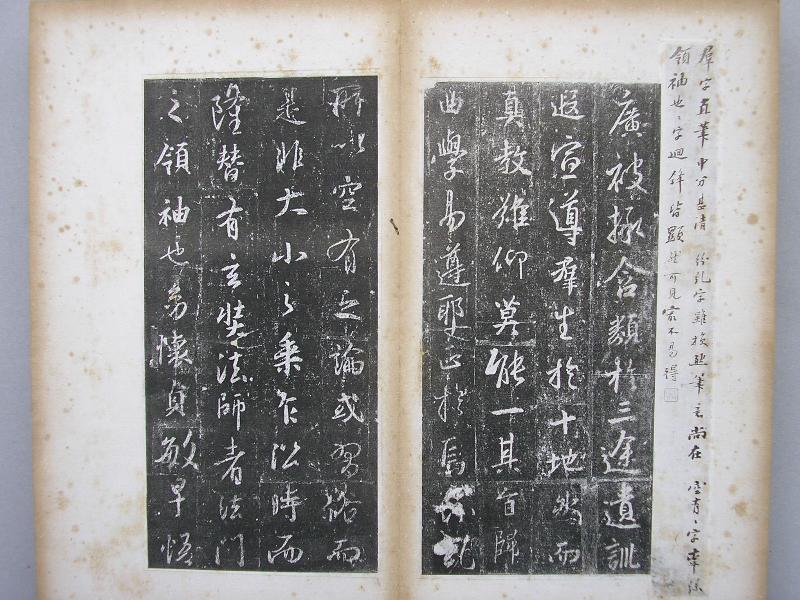 羣字直筆中分甚清 紛糺字雖損然筆意尚在
領袖也、字迴鋒皆顯然可見最不易得
廣被拯含類於三途遺訓
遐宣導羣生於十地然而
真教難仰莫能一其旨歸
曲學易遵耶正於焉紛糺
所以空有之論或習俗而
是非大小之乘乍沿時而
隆替有玄奘法師者法門
之領袖也幼懷貞敏早悟